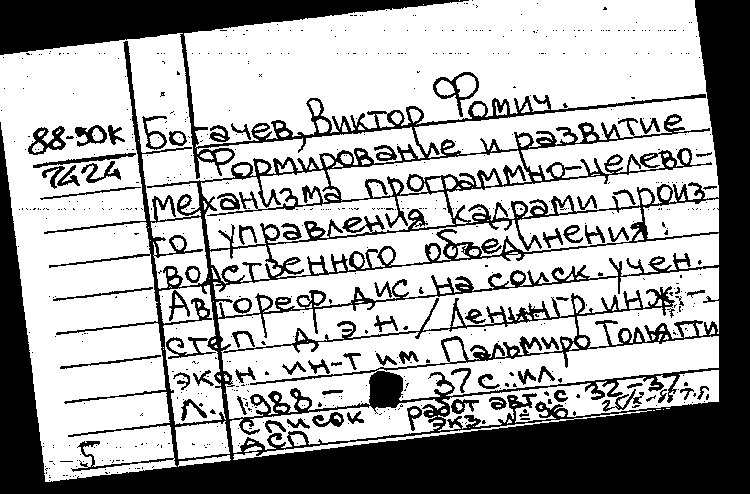 88-50к
7424
Богачев, Виктор Фомич.
Формирование и развитие
механизма программно-целево-
го управления кадрами произ-
водственного объединения:
Автореф. дис. на соиск. учен.
степ. д.э.н. / Ленингр. инж.-
экон. ин-т им. Пальмиро Тольятти
Л., 1988. - 37 с.: ил.
Список работ авт.: с. 32-37.
ДСП. Экз. № 96.
5